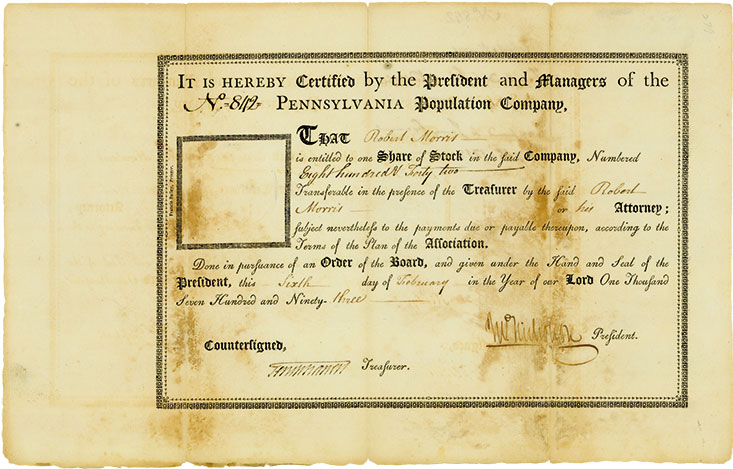 IT IS HEREBY Certified by the President and Managers of the
No. 842 PENNSYLVANIA Population Company,
THAT Robert Morris
is entitled to one Share of Stock in the ſaid Company, Numbered
Eight hundred & Forty two
Transferable in the preſence of the Treasurer by the ſaid Robert
Morris or his Attorney;
ſubject nevertheleſs to the payments due or payable thereupon, according to the
Terms of the Plan of the Association.
Done in purſuance of an Order of the Board, and given under the Hand and Seal of the
President, this Sixth day of February in the Year of our Lord One Thouſand
Seven Hundred and Ninety-three
Jno Nicholson President.
Countersigned,
Treaſurer.